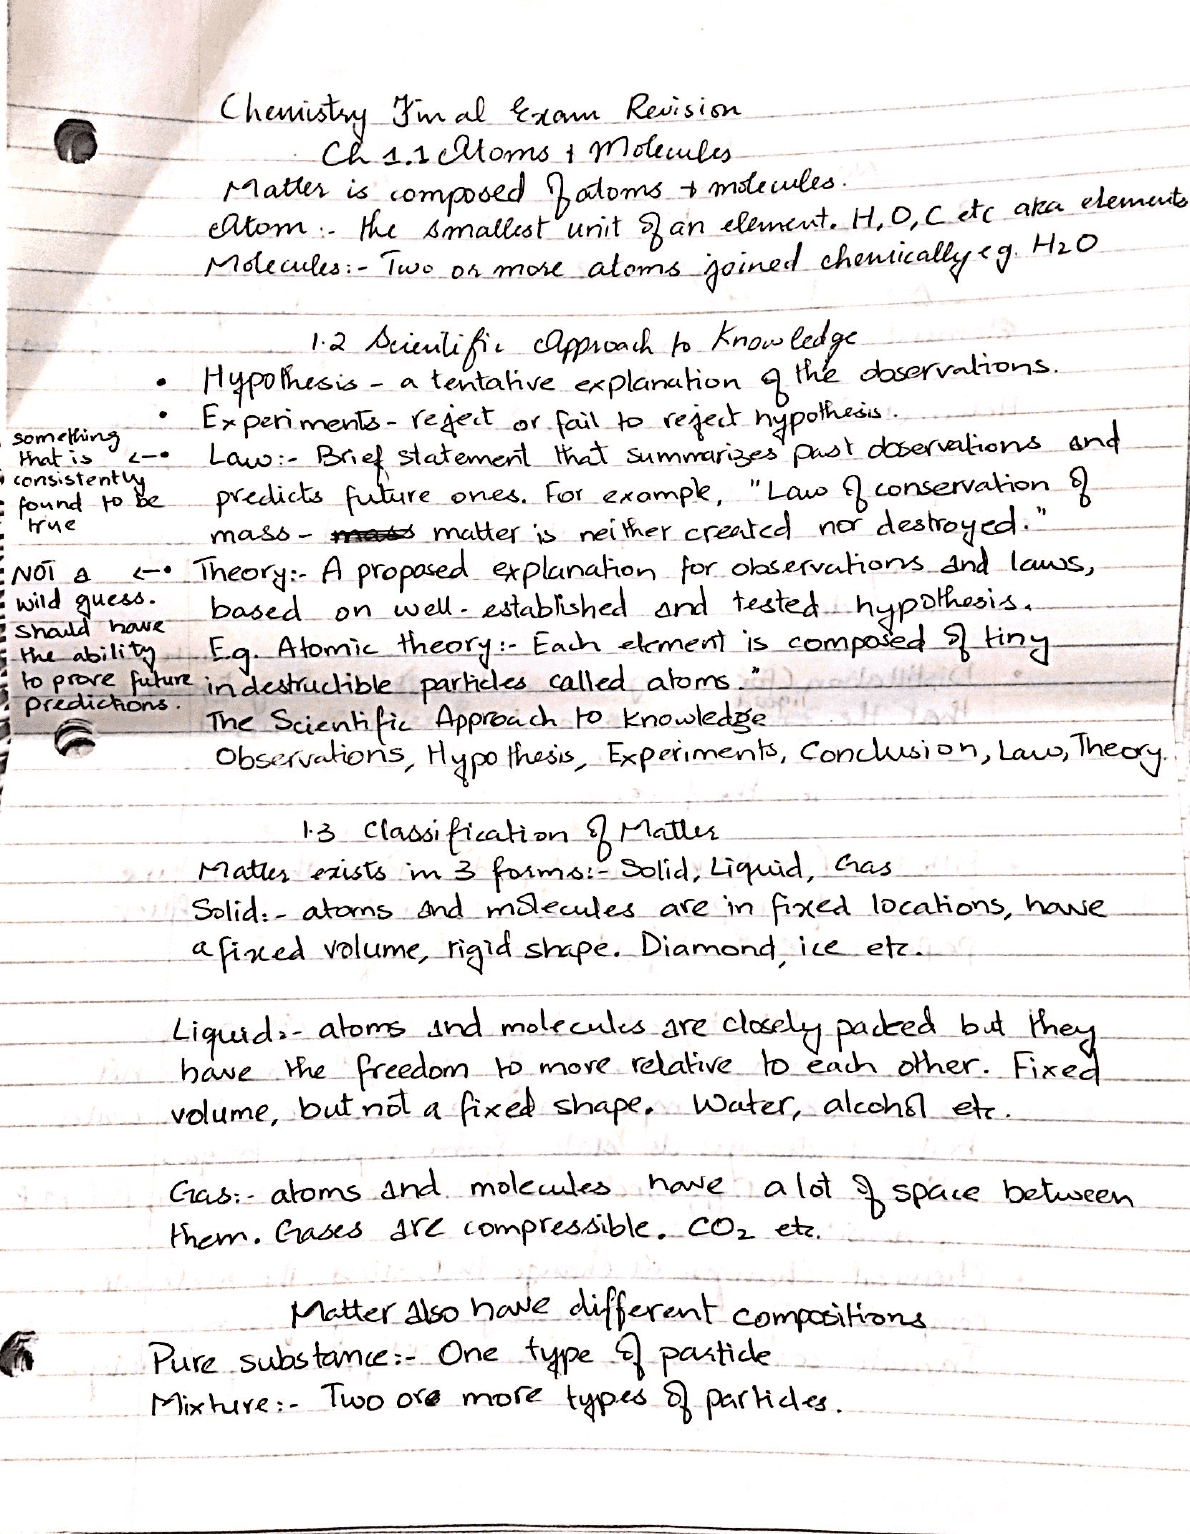 Chemistry Final Exam Revision
Ch 1.1 Atoms + Molecules
Matter is composed of atoms + molecules.
Atom :- the smallest unit of an element. H, O, C etc aka elements
Molecules:- Two or more atoms joined chemically eg. H2O
1.2 Scientific Approach to Knowledge
• Hypothesis - a tentative explanation of the observations.
• Experiments - reject or fail to reject hypothesis.
something
that is
consistently
found to be
true
<-• Law:- Brief statement that summarizes past observations and
predicts future ones. For example, "Law of conservation of
mass - mass matter is neither created nor destroyed."
NOT a
wild guess.
should have
the ability
to prove future
predictions.
<-• Theory:- A proposed explanation for observations and laws,
based on well-established and tested hypothesis.
E.g. Atomic theory:- Each element is composed of tiny
indestructible particles called atoms."
The Scientific Approach to Knowledge
Observations, Hypothesis, Experiments, Conclusion, Law, Theory.
1.3 Classification of Matter
Matter exists in 3 forms:- Solid, Liquid, Gas
Solid:- atoms and molecules are in fixed locations, have
a fixed volume, rigid shape. Diamond, ice etc.
Liquid:- atoms and molecules are closely packed but they
have the freedom to move relative to each other. Fixed
volume, but not a fixed shape. Water, alcohol etc.
Gas:- atoms and molecules have a lot of space between
them. Gases are compressible. CO2 etc.
Matter also have different compositions
Pure substance:- One type of particle
Mixture:- Two or more types of particles.